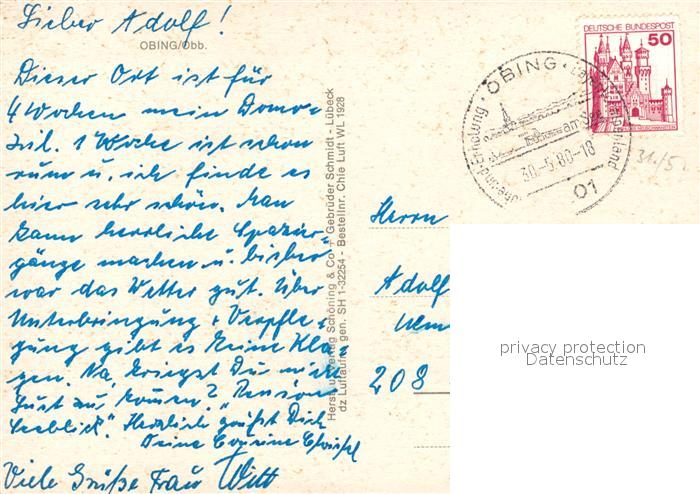 Lieber Adolf!
OBING/Obb.
Dieser Ort ist für
4 Wochen mein Domo-
zil. 1 Woche ist schon
rum u. ich finde es
hier sehr schön. Man
kann herrliche Spazier-
gänge machen u. bisher
war das Wetter gut. Über
Unterbringung + Verpfle-
gung gibt es keine Kla-
gen. Na, kriegst Du nicht
Lust zu kommen? "Pension
Seeblick". Herzlich grüßt Dich
Deine Cousine Christel
Viele Grüße Frau Witt
Herst. u. Verlag Schöning & Co + Gebrüder Schmidt - Lübeck
dz Luftaufn. gen. SH 1-32254 - Bestellnr. Chie Luft WL 1928
DEUTSCHE BUNDESPOST
50
OBING
am See
30.-5.80-18
01
31./5.
Herrn
Adolf
208
privacy protection
Datenschutz